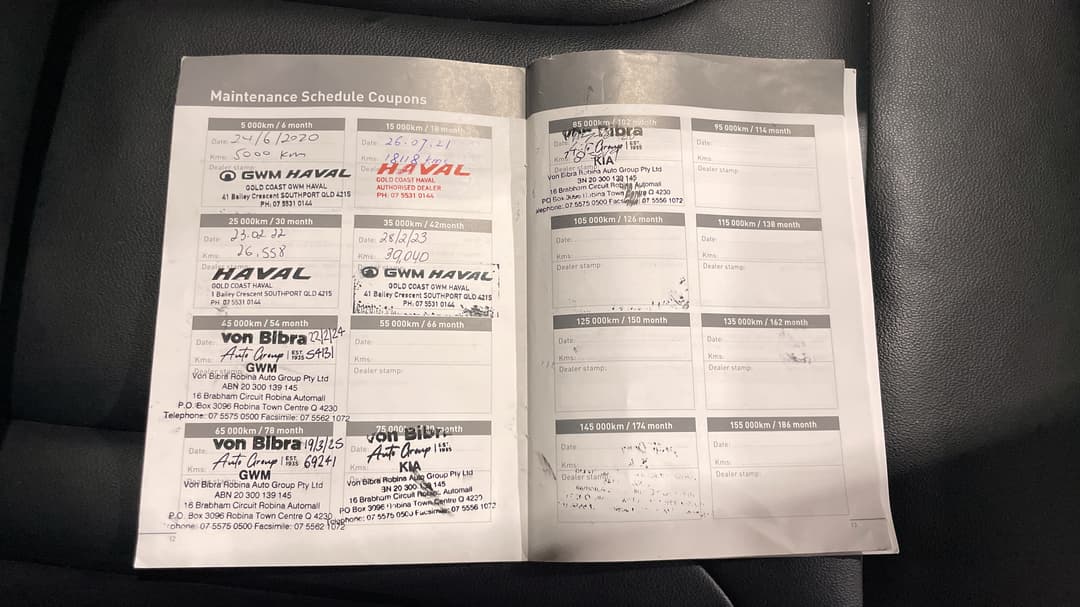 Maintenance Schedule Coupons
5 000km / 6 month
Date: 24/6/2020
Kms: 5000 km
Dealer stamp:
GWM HAVAL
GOLD COAST GWM HAVAL
41 Bailey Crescent SOUTHPORT QLD 4215
PH: 07 5531 0144
15 000km / 18 month
Date: 26.07.21
Kms: 18118 kms
Dealer stamp:
HAVAL
GOLD COAST HAVAL
AUTHORISED DEALER
PH: 07 5531 0144
25 000km / 30 month
Date: 23.02.22
Kms: 26,558
Dealer stamp:
HAVAL
GOLD COAST HAVAL
1 Bailey Crescent SOUTHPORT QLD 4215
PH: 07 5531 0144
35 000km / 42month
Date: 28/2/23
Kms: 39,040
Dealer stamp:
GWM HAVAL
GOLD COAST GWM HAVAL
41 Bailey Crescent SOUTHPORT QLD 4215
PH: 07 5531 0144
45 000km / 54 month
Date: 22/2/24
von Bibra
Kms: 54131
Auto Group | EST. 1935
Dealer stamp:
GWM
Von Bibra Robina Auto Group Pty Ltd
ABN 20 300 139 145
16 Brabham Circuit Robina Automall
P.O. Box 3096 Robina Town Centre Q 4230
Telephone: 07 5575 0500 Facsimile: 07 5562 1072
55 000km / 66 month
Date:
Kms:
Dealer stamp:
65 000km / 78 month
Date: 19/3/25
von Bibra
Kms: 69241
Auto Group | EST. 1935
GWM
Von Bibra Robina Auto Group Pty Ltd
ABN 20 300 139 145
16 Brabham Circuit Robina Automall
P.O. Box 3096 Robina Town Centre Q 4230
phone: 07 5575 0500 Facsimile: 07 5562 1072
12
75 000km / month
von Bibra
Auto Group | EST. 1935
Kms:
KIA
Von Bibra Robina Auto Group Pty Ltd
BN 20 300 145
16 Brabham Circuit Robina Automall
PO Box 3096 Robina Town Centre Q 4230
Telephone: 07 5575 0500 Facsimile: 07 5556 1072
85 000km / 102 month
von Bibra
Date:
Auto Group | EST. 1935
Kms:
KIA
Dealer stamp:
Von Bibra Robina Auto Group Pty Ltd
BN 20 300 139 145
16 Brabham Circuit Robina Automall
PO Box 3096 Robina Town Q 4230
Telephone: 07 5575 0500 07 5556 1072
95 000km / 114 month
Date:
Kms:
Dealer stamp:
105 000km / 126 month
Date:
Kms:
Dealer stamp:
115 000km / 138 month
Date:
Kms:
Dealer stamp:
125 000km / 150 month
Date:
Kms:
Dealer stamp:
135 000km / 162 month
Date:
Kms:
Dealer stamp:
145 000km / 174 month
Date:
Kms:
Dealer stamp:
155 000km / 186 month
Date:
Kms:
Dealer stamp:
13